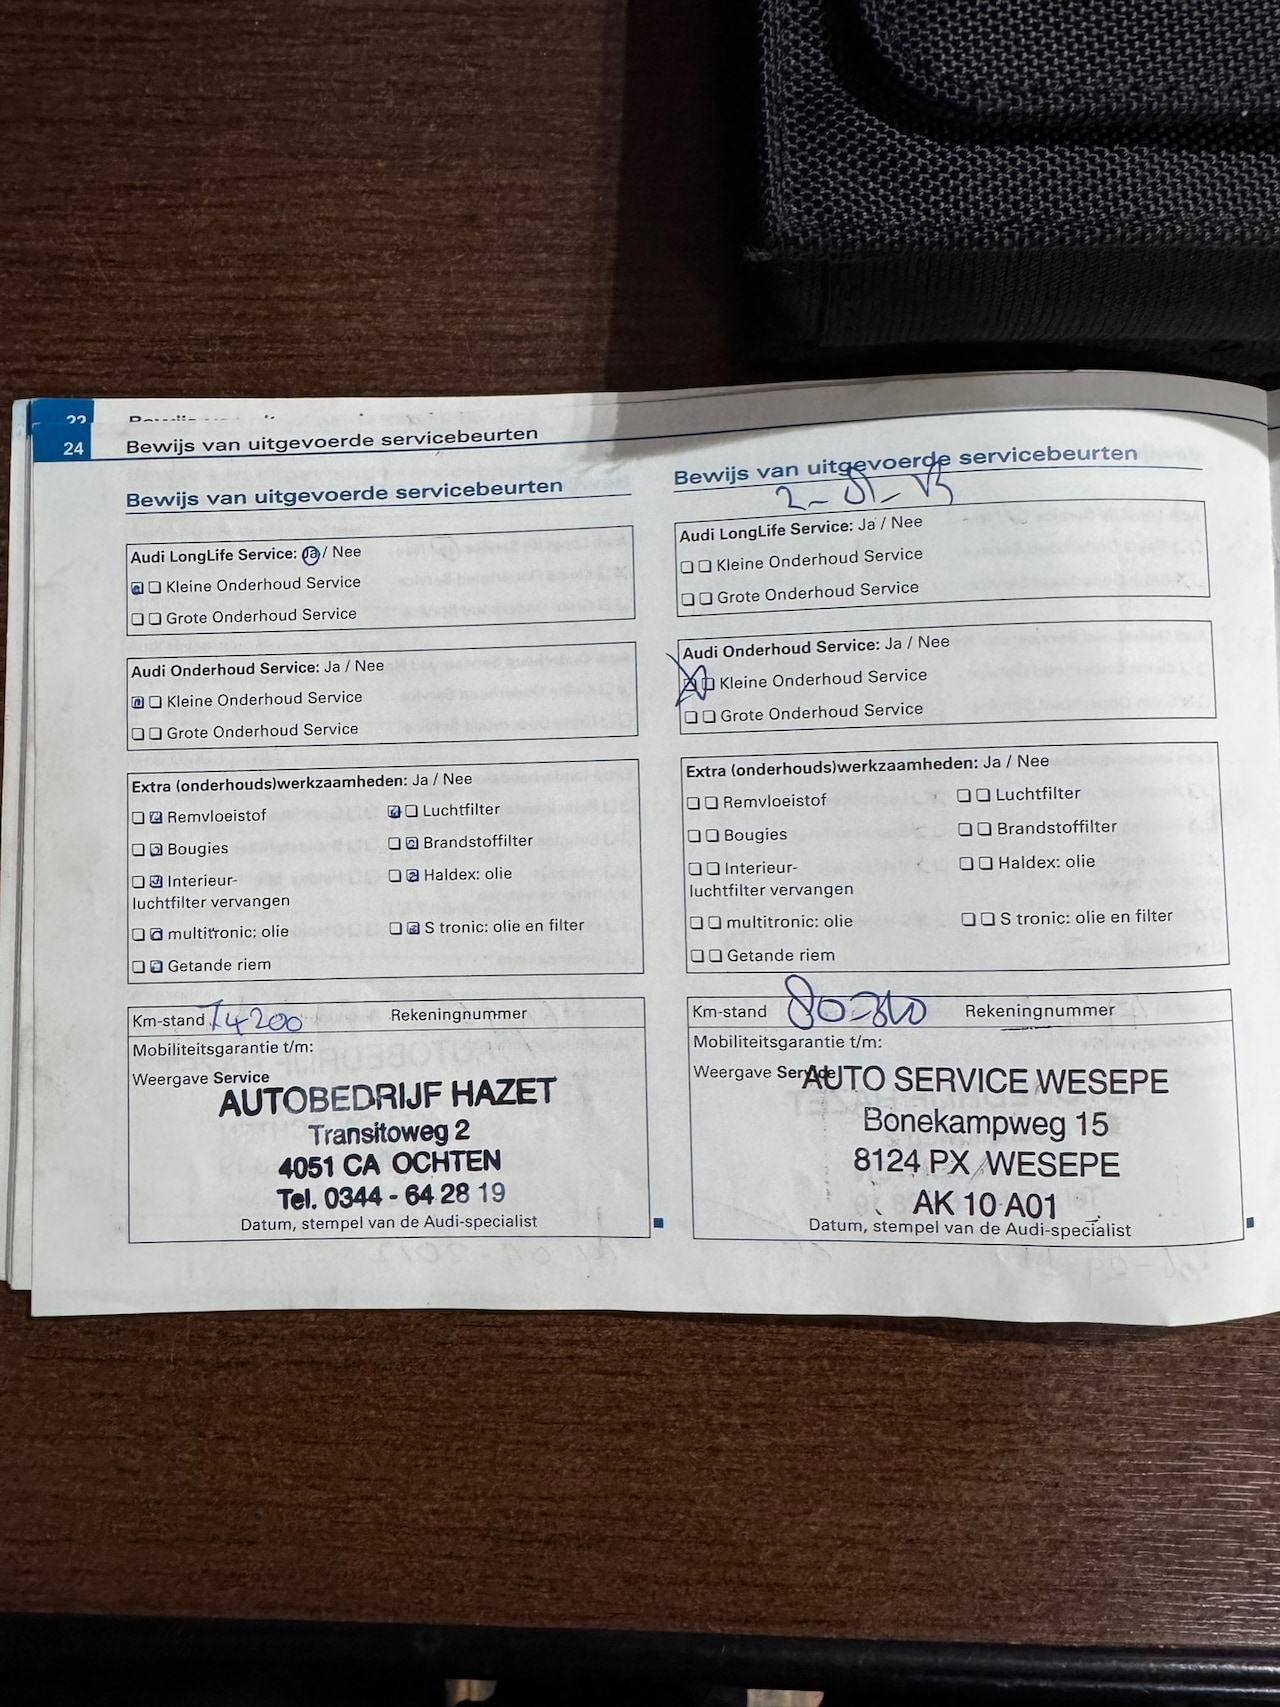 24 Bewijs van uitgevoerde servicebeurten
Bewijs van uitgevoerde servicebeurten
Audi LongLife Service: Ja / Nee
Kleine Onderhoud Service
Grote Onderhoud Service
Audi Onderhoud Service: Ja / Nee
Kleine Onderhoud Service
Grote Onderhoud Service
Extra (onderhouds)werkzaamheden: Ja / Nee
Remvloeistof Luchtfilter
Bougies Brandstoffilter
Interieur- Haldex: olie
luchtfilter vervangen
multitronic: olie S tronic: olie en filter
Getande riem
Km-stand 74200 Rekeningnummer
Mobiliteitsgarantie t/m:
Weergave Service
AUTOBEDRIJF HAZET
Transitoweg 2
4051 CA OCHTEN
Tel. 0344 - 64 28 19
Datum, stempel van de Audi-specialist
Bewijs van uitgevoerde servicebeurten
Audi LongLife Service: Ja / Nee
Kleine Onderhoud Service
Grote Onderhoud Service
Audi Onderhoud Service: Ja / Nee
Kleine Onderhoud Service
Grote Onderhoud Service
Extra (onderhouds)werkzaamheden: Ja / Nee
Remvloeistof Luchtfilter
Bougies Brandstoffilter
Interieur- Haldex: olie
luchtfilter vervangen
multitronic: olie S tronic: olie en filter
Getande riem
Km-stand Rekeningnummer
Mobiliteitsgarantie t/m:
Weergave Service
AUTO SERVICE WESEPE
Bonekampweg 15
8124 PX WESEPE
AK 10 A01
Datum, stempel van de Audi-specialist